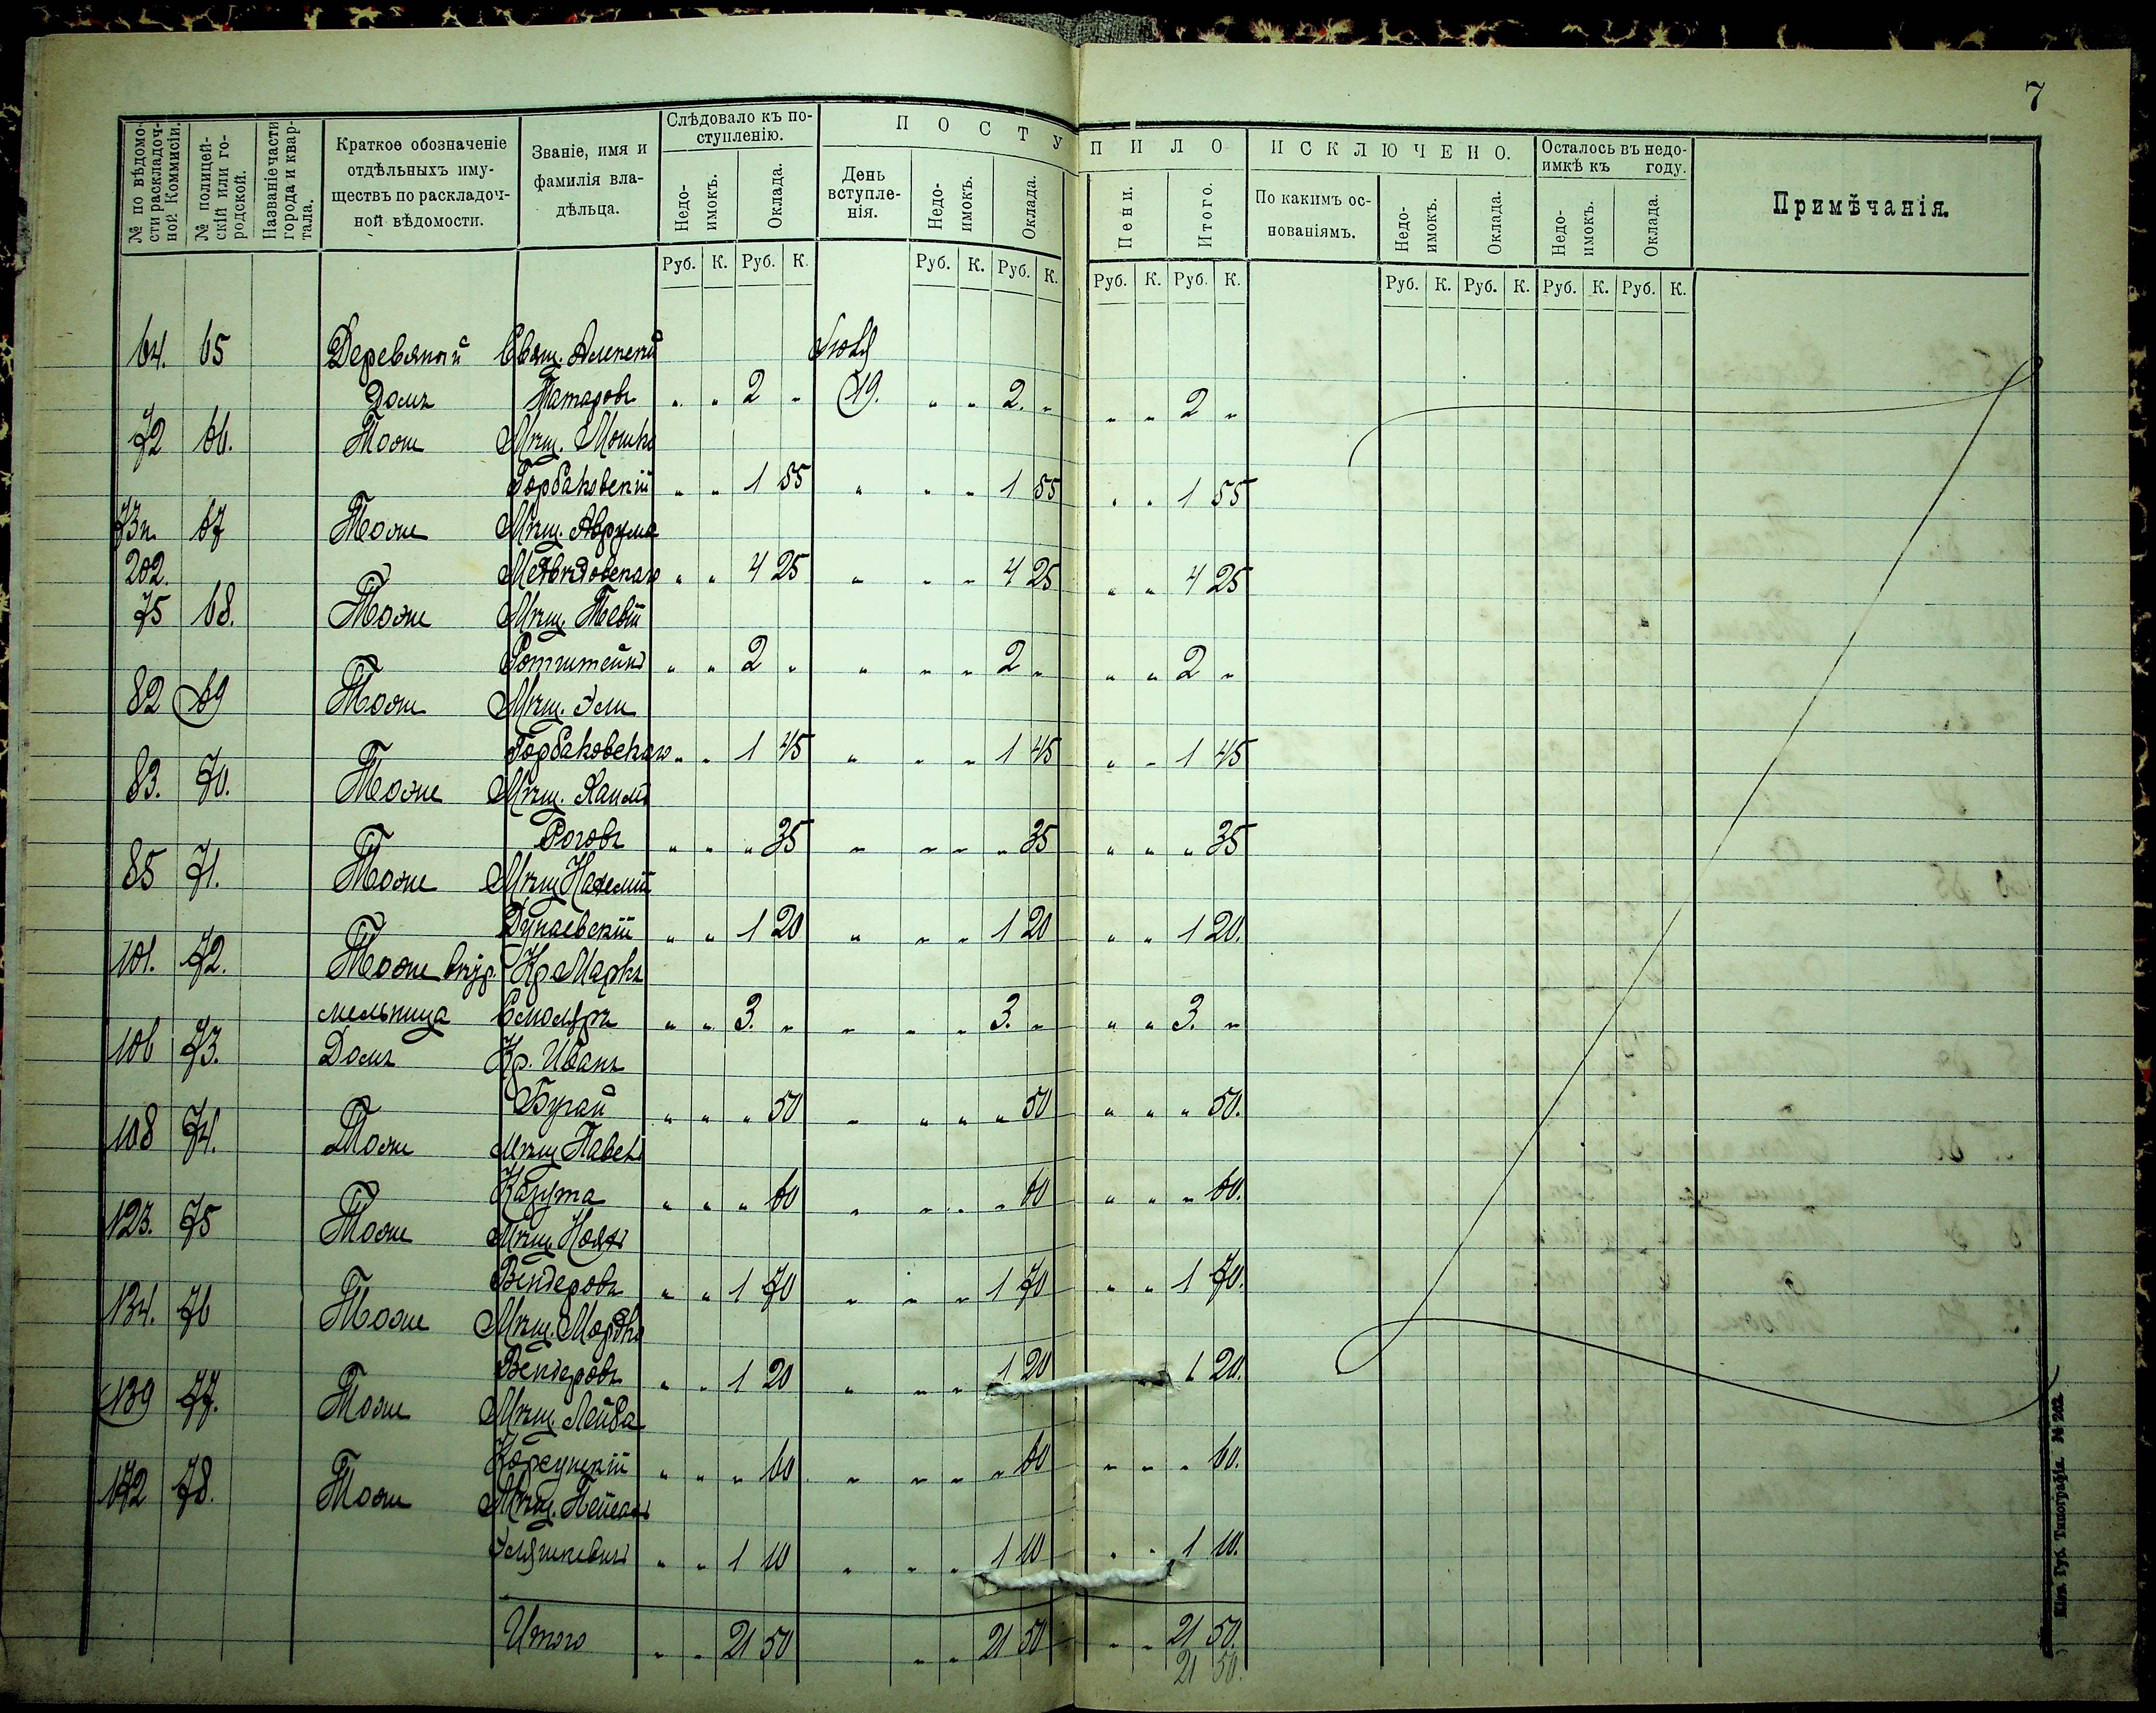 7
№ по вѣдомости раскладочной Коммисіи.
№ полицейскій или городской.
Названіе части города и квартала.
Краткое обозначеніе отдѣльныхъ имуществъ по раскладочной вѣдомости.
Званіе, имя и фамилія владѣльца.
Слѣдовало къ поступленію.
Недоимокъ. Оклада.
ПОСТУПИЛО
День вступленія. Недоимокъ. Оклада. Пени. Итого.
ИСКЛЮЧЕНО.
По какимъ основаніямъ. Недоимокъ. Оклада.
Осталось въ недоимкѣ къ году.
Недоимокъ. Оклада.
Примѣчанія.
Руб. К. Руб. К. Руб. К. Руб. К. Руб. К. Руб. К. Руб. К. Руб. К. Руб. К. Руб. К.
64. 65 Деревяной Свящ. Алексѣй
Домъ Татаровъ „ „ 2 „ 19. „ „ 2. „ „ „ 2 „
72 66. Тоже Мѣщ. Мошко
Горбаковскій „ „ 1 55 „ „ „ 1 55 „ „ 1 55
73 и 67 Тоже Мѣщ. Аврума
202. Медвѣдовскаго „ „ 4 25 „ „ „ 4 25 „ „ 4 25
75 68. Тоже Мѣщ. Тевій
Ротштейнъ „ „ 2 „ „ „ „ 2 „ „ „ 2 „
82 69 Тоже Мѣщ. Эли
Горбаковскаго „ „ 1 45 „ „ „ 1 45 „ „ 1 45
83. 70. Тоже Мѣщ. Хаимъ
Роговъ „ „ „ 35 „ „ „ „ 35 „ „ „ 35
85 71. Тоже Мѣщ.
Дунаевскій „ „ 1 20 „ „ „ 1 20 „ „ 1 20.
101. 72. Тоже вѣтр. Кр. Маркъ
мельница Смоляръ „ „ 3. „ „ „ „ 3. „ „ „ 3. „
106 73. Домъ Кр. Иванъ
Бугай „ „ „ 50 „ „ „ „ 50 „ „ „ 50.
108 74. Тоже Мѣщ. Павелъ
Кагута „ „ „ 60 „ „ „ „ 60 „ „ „ 60.
123. 75 Тоже Мѣщ.
Вендеровъ „ „ 1 70 „ „ „ 1 70 „ „ 1 70.
134. 76 Тоже Мѣщ. Мордко
Вендеровъ „ „ 1 20 „ „ „ 1 20 1 20.
139 77. Тоже Мѣщ. Лейба
Корсунскій „ „ „ 60 „ „ „ „ 60 „ „ „ 60.
172 78. Тоже Мѣщ.
„ „ 1 10 „ „ „ 1 10 „ „ 1 10.
Итого „ „ 21 50 „ „ 21 50 „ „ 21 50.
21 50.
Кіев. Губ. Типографія. № 202